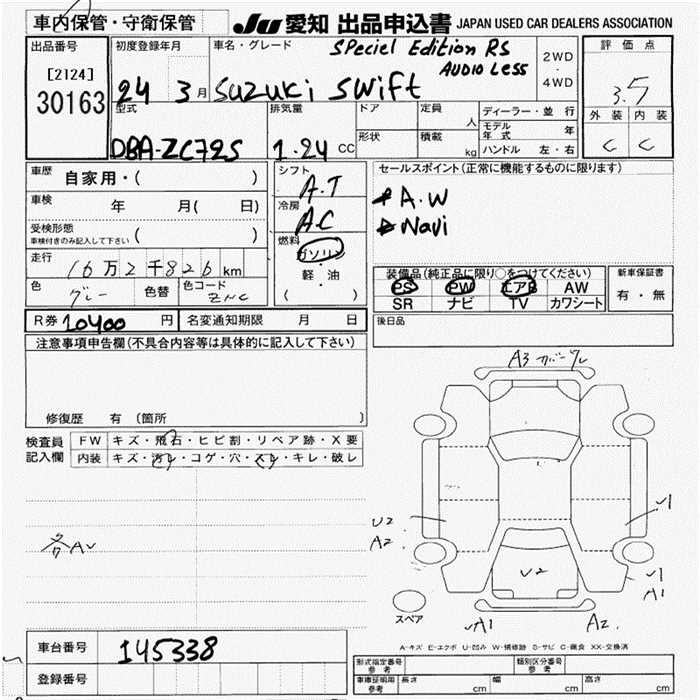 車内保管・守衛保管
JU 愛知 出品申込書 JAPAN USED CAR DEALERS ASSOCIATION
出品番号
[2124]
30163
初度登録年月
24 3月
車名・グレード
SPeciel Edition RS
AUDIO Less
Suzuki Swift
2WD
・
4WD
評価点
3.5
外装 内装
C C
型式
DBA-ZC72S
排気量
1.24 CC
ドア
定員
人
形状
積載
kg
ディーラー・並行
モデル年式 年
ハンドル 左・右
車歴 自家用・( )
車検 年 月( 日)
受検形態
車検付きのみ記入して下さい ( )
走行 16万2千826km
色 グレー 色替 色コード ZNC
シフト
A.T
冷房
A.C
燃料
ガソリン
・
軽・油
( )
セールスポイント(正常に機能するものに限ります)
A.W
Navi
装備品(純正品に限り○をつけてください)
PS PW エアB AW
SR ナビ TV カワシート
新車保証書
有・無
R券 10400 円 名変通知期限 月 日
後日品
注意事項申告欄(不具合内容等は具体的に記入して下さい)
修復歴 有 (箇所 )
検査員
記入欄
FW キズ・飛石・ヒビ割・リペア跡・X要
内装 キズ・汚レ・コゲ・穴・スレ・キレ・破レ
各AU
A3 カバーワレ
U2
A2
U2
√1
√1
A1
√A1
A2
スペア
A-キズ E-エクボ U-凹み W-補修跡 S-サビ C-腐食 XX-交換済
車台番号 145338
登録番号
形式指定番号
参考
類別区分番号
参考
車庫証明用
参考
長さ cm 幅 cm 高さ cm